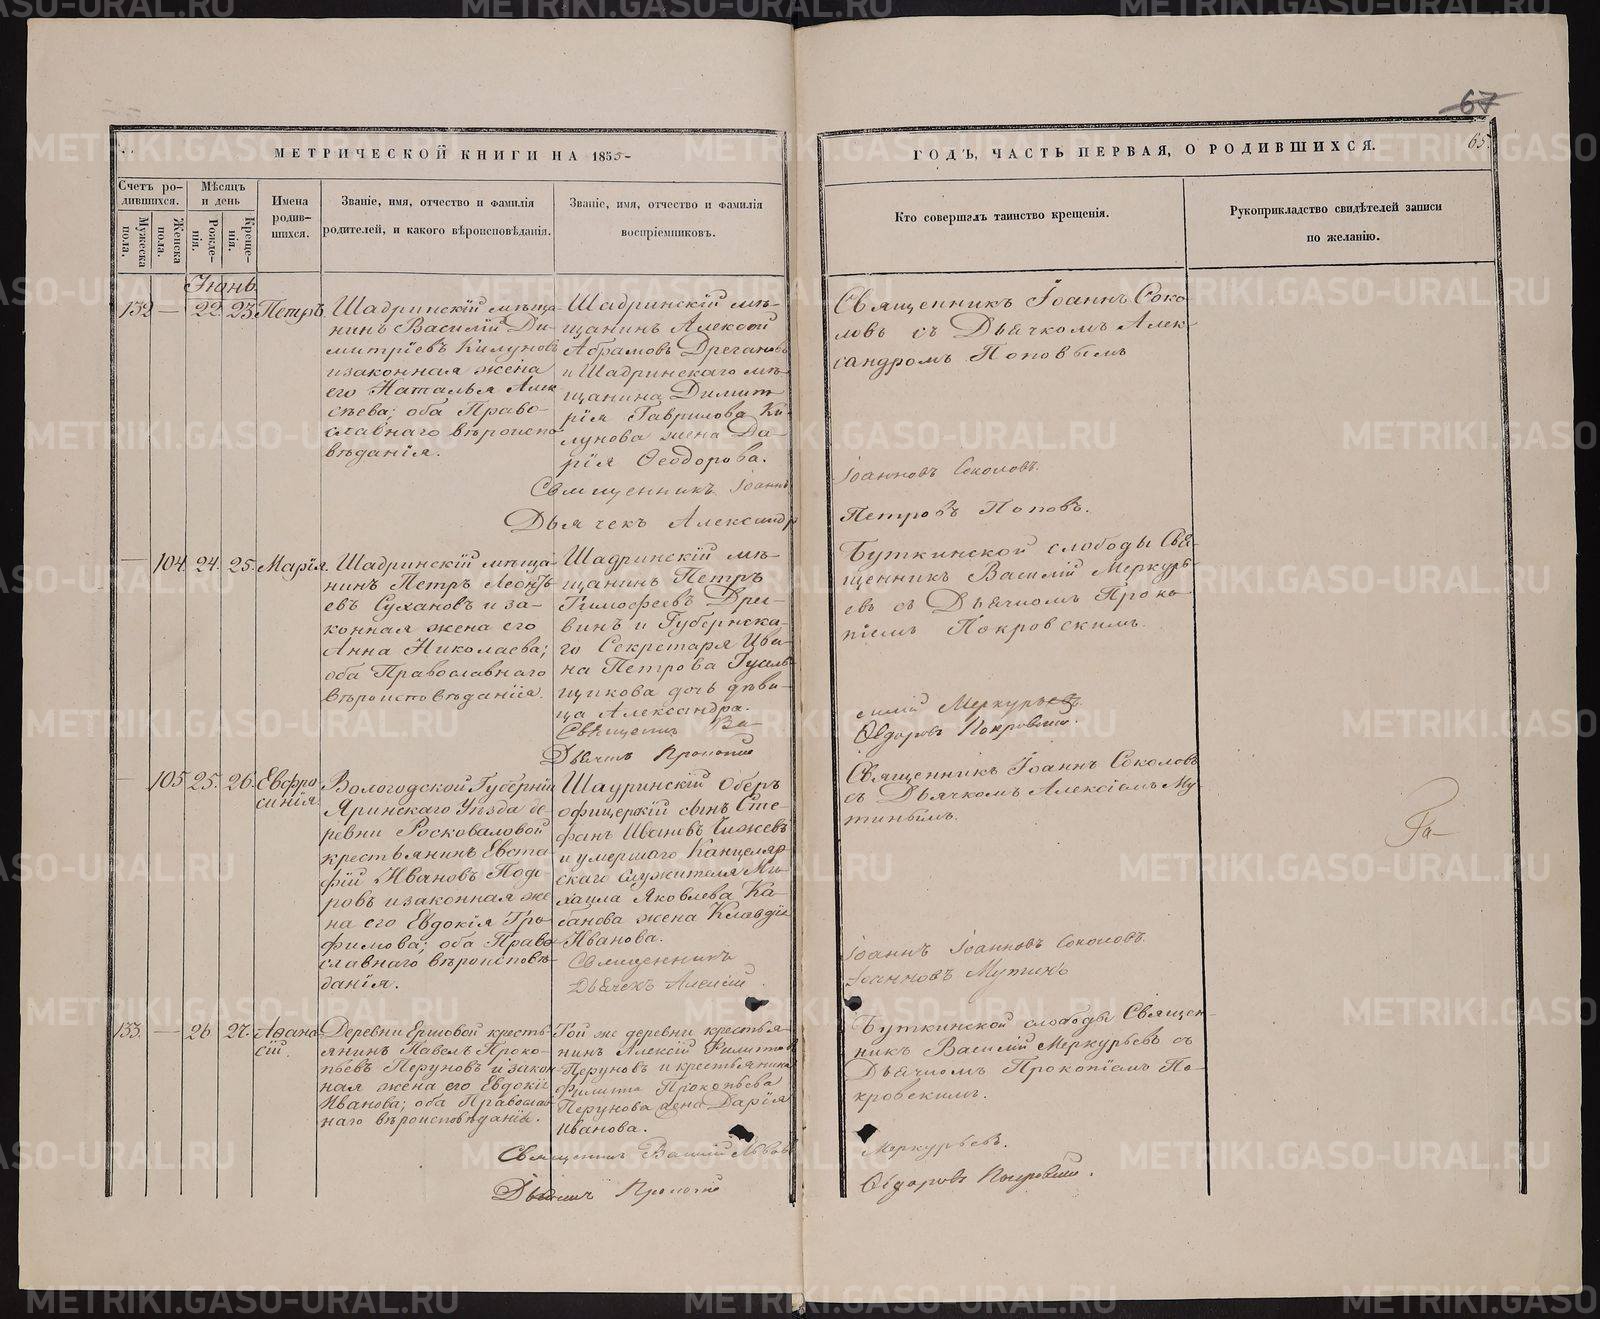 67
МЕТРИЧЕСКОЙ КНИГИ НА 1855
ГОДЪ, ЧАСТЬ ПЕРВАЯ, О РОДИВШИХСЯ.
65.
Счетъ ро-
дившихся.
Мужеска
пола.
Женска
пола.
Мѣсяцъ
и день
Рожде-
нія.
Креще-
нія.
Имена
родив-
шихся.
Званіе, имя, отчество и фамилія
родителей, и какого вѣроисповѣданія.
Званіе, имя, отчество и фамилія
воспріемниковъ.
Кто совершалъ таинство крещенія.
Рукоприкладство свидѣтелей записи
по желанію.
Іюнь
132 — 22 23 Петръ
Шадринскій мѣща-
нинъ Василій Ди-
митріевъ Килуновъ
и законная жена
его Наталья Алек-
сѣева; оба Право-
славнаго вѣроиспо-
вѣданія.
Шадринскій мѣ-
щанинъ Алексѣй
Абрамовъ
и Шадринскаго мѣ-
щанина Димит-
рія Гаврилова Ки-
лунова жена Да-
рія Ѳеодорова.
Священникъ Іоаннъ
Дьячекъ Александръ
Священникъ Іоаннъ Соко-
ловъ съ Дьячкомъ Алек-
сандромъ Поповымъ
Іоанновъ Соколовъ.
Петровъ Поповъ.
— 104 24. 25. Марія.
Шадринскій мѣща-
нинъ Петръ Леонтьь-
евъ Сухановъ и за-
конная жена его
Анна Николаева;
оба Православнаго
вѣроисповѣданія.
Шадринскій мѣ-
щанинъ Петръ
Тимофеевъ Дрег-
винъ и Губернска-
го Секретаря Ива-
на Петрова
щикова дочь дѣви-
ца Александра.
Священникъ Ва-
Дьячекъ Прокопій
Буткинской слободы Свя-
щенникъ Василій Меркурь-
евъ съ Дьячкомъ Проко-
піемъ Покровскимъ.
силій Меркурьевъ.
Ѳедоровъ Покровскій.
— 105 25. 26. Евфро-
синія
Вологодской Губерніи
Яринскаго Уѣзда де-
ревни Росковаловой
крестьянинъ Евста-
фій Ивановъ Подо-
ровъ и законная же-
на его Евдокія Тро-
фимова; оба Право-
славнаго вѣроисповѣ-
данія.
Шадринскій Оберъ
офицерскій сынъ Сте-
фанъ Ивановъ Чижевъ
и умершаго Канцеляр-
скаго служителя Ми-
хаила Яковлева Ка-
банова жена Клавдія
Иванова.
Священникъ
Дьячекъ Алексій
Священникъ Іоаннъ Соколовъ
съ Дьячкомъ Алексіемъ Му-
тинымъ.
Іоаннъ Іоанновъ Соколовъ.
Іоанновъ Мутинъ
133. — 26 27. Аѳана-
сій.
Деревни Ершовой кресть-
янинъ Павелъ Проко-
пьевъ Перуновъ и закон-
ная жена его Евдокія
Иванова; оба Православ-
наго вѣроисповѣданія.
Той же деревни крестья-
нинъ Алексій Филиппов
Перуновъ и крестьянина
Филиппа Прокопьева
Перунова жена Дарія
Иванова.
Священникъ Василій
Дьячекъ Прокопій
Буткинской слободы Священ-
никъ Василій Меркурьевъ съ
Дьячкомъ Прокопіемъ По-
кровскимъ.
Меркурьевъ.
Ѳедоровъ Покровскій.
METRIKI.GASO-URAL.RU